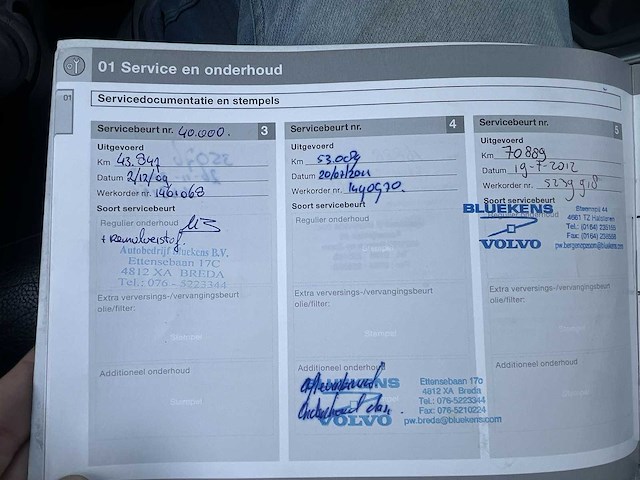 01 Service en onderhoud
01
Servicedocumentatie en stempels
Servicebeurt nr. 40.000. 3
Uitgevoerd
Km 43.841
Datum 2/12/09
Werkorder nr. 1401068
Soort servicebeurt
Regulier onderhoud
+ remvloeistof.
Autobedrijf Bluekens B.V.
Ettensebaan 17C
4812 XA BREDA
Tel.: 076 - 5223344
Extra verversings-/vervangingsbeurt
olie/filter:
Stempel
Additioneel onderhoud
Stempel
Servicebeurt nr. 4
Uitgevoerd
Km 53.089
Datum 20/07/2011
Werkorder nr. 1440970.
Soort servicebeurt
Regulier onderhoud
Stempel
Extra verversings-/vervangingsbeurt
olie/filter:
Stempel
Additioneel onderhoud
onderhoud
BLUEKENS
VOLVO
Ettensebaan 17c
4812 XA Breda
Tel.: 076-5223344
Fax: 076-5210224
pw.breda@bluekens.com
Servicebeurt nr. 5
Uitgevoerd
Km 70889
Datum 19-7-2012
Werkorder nr. 5259918
Soort servicebeurt
Regulier onderhoud
BLUEKENS
VOLVO
4661 TZ Halsteren
Tel.: (0164)
Fax: (0164)
pw.bergenopzoom@bluekens.com
Extra verversings-/vervangingsbeurt
olie/filter:
Stempel
Additioneel onderhoud
Stempel